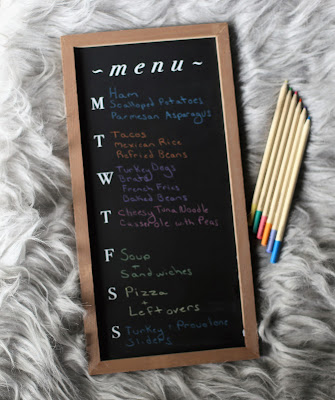 ~menu~
M Ham
Scalloped Potatoes
Parmesan Asparagus
T Tacos
Mexican Rice
Refried Beans
W Turkey Dogs
Brats
French Fries
Baked Beans
T Cheesy Tuna Noodle
Casserole with Peas
F Soup
+
Sandwiches
S Pizza
+
Leftovers
S Turkey + Provolone
Sliders